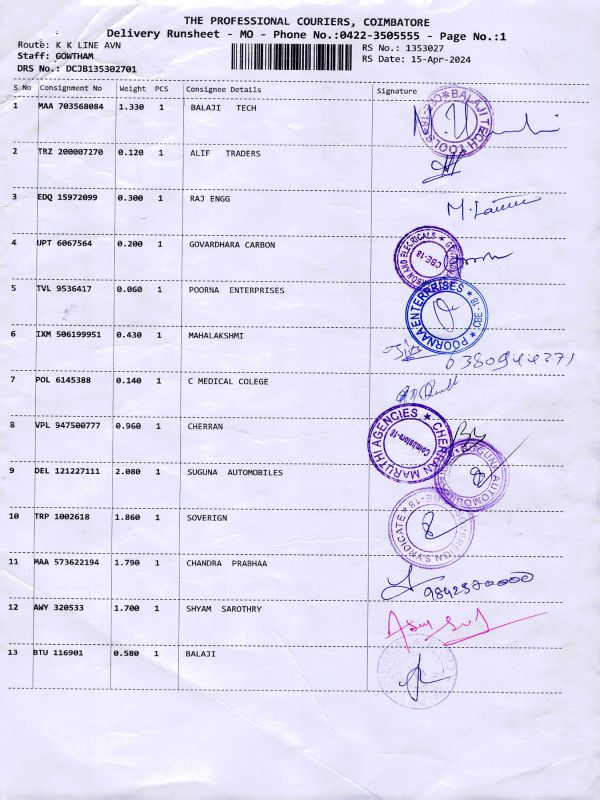 THE PROFESSIONAL COURIERS, COIMBATORE
Delivery Runsheet - MO - Phone No.:0422-3505555 - Page No.:1
Route: K K LINE AVN RS No.: 1353027
Staff: GOWTHAM RS Date: 15-Apr-2024
DRS No.: DCJB135302701
S No Consignment No Weight PCS Consignee Details Signature
1 MAA 703568084 1.330 1 BALAJI TECH
BALAJI TECH TOOLS
2 TRZ 200007270 0.120 1 ALIF TRADERS
3 EDQ 15972099 0.300 1 RAJ ENGG
4 UPT 6067564 0.200 1 GOVARDHARA CARBON
CBE-18
5 TVL 9536417 0.060 1 POORNA ENTERPRISES
POORNAA ENTERPRISES CBE-18
6 IXM 506199951 0.430 1 MAHALAKSHMI
7 POL 6145388 0.140 1 C MEDICAL COLEGE
8 VPL 947500777 0.960 1 CHERRAN
CHERRAN MARUTHI AGENCIES Coimbatore-18
9 DEL 121227111 2.080 1 SUGUNA AUTOMOBILES
10 TRP 1002618 1.860 1 SOVERIGN
SYNDICATE
11 MAA 573622194 1.790 1 CHANDRA PRABHAA
12 AWY 320533 1.700 1 SHYAM SAROTHRY
13 BTU 116901 0.580 1 BALAJI